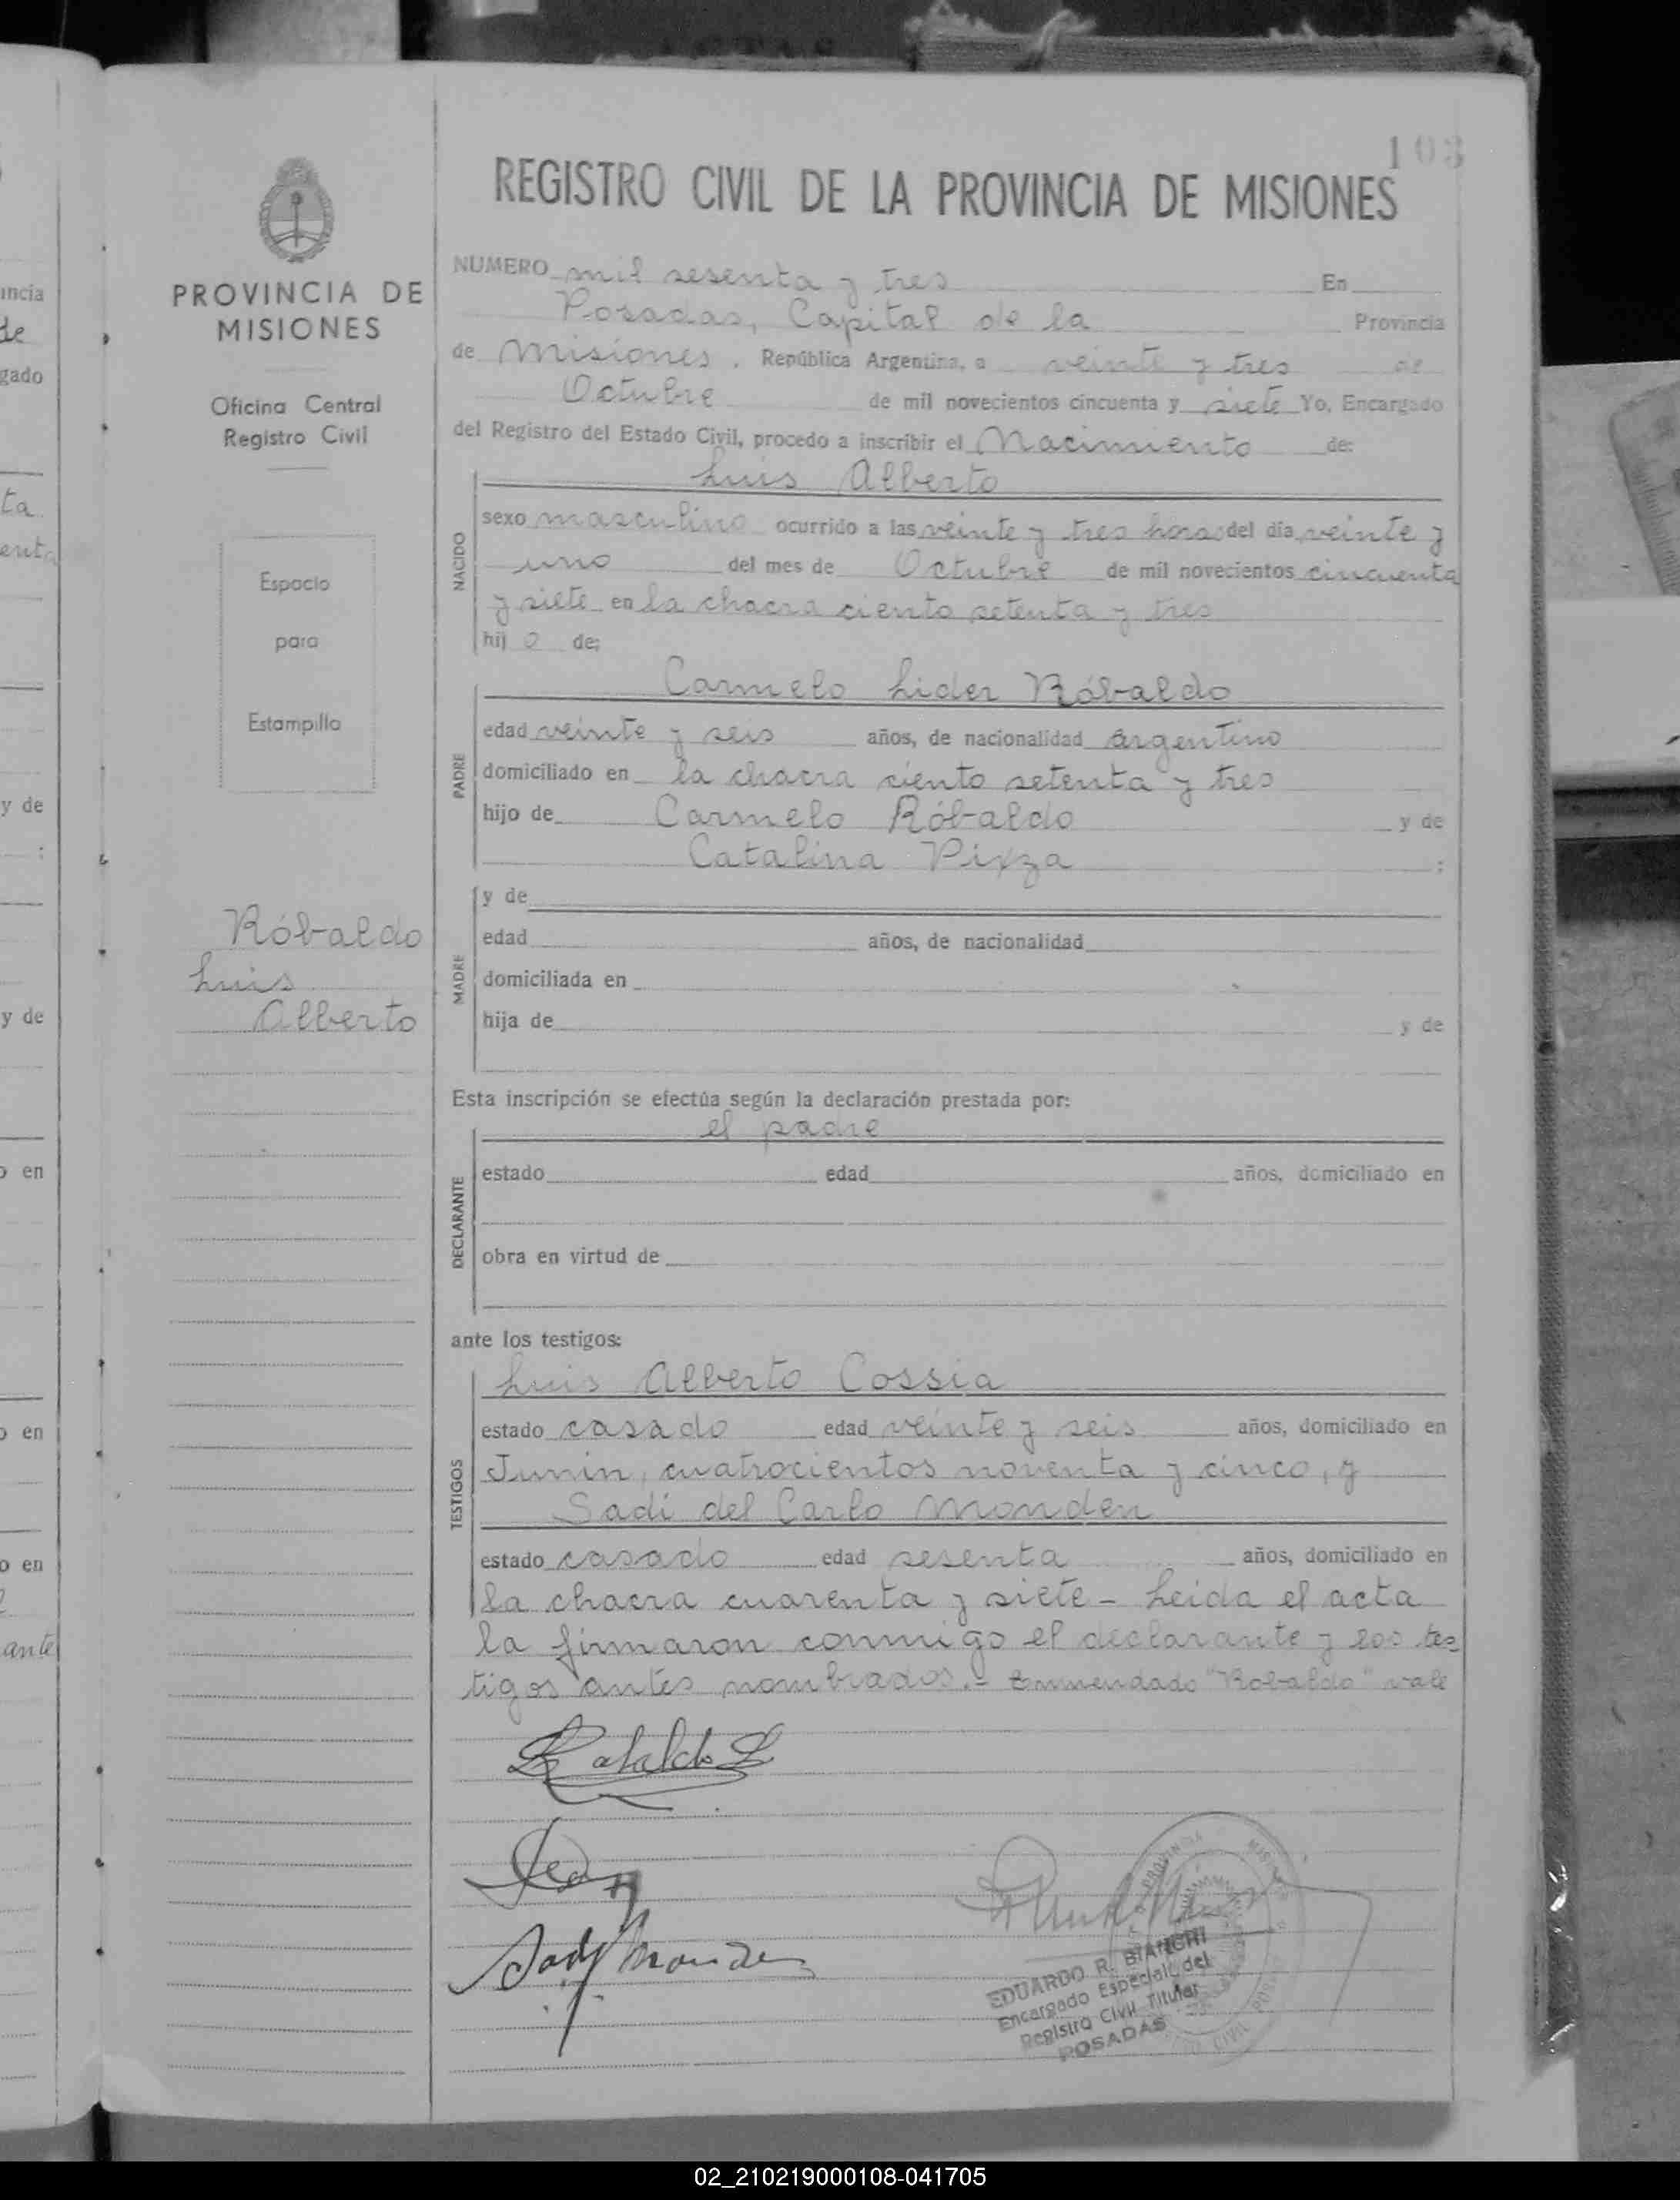 103
REGISTRO CIVIL DE LA PROVINCIA DE MISIONES
PROVINCIA DE
MISIONES
Oficina Central
Registro Civil
Espacio
para
Estampilla
Róbaldo
Luis
Alberto
NUMERO mil sesenta y tres En
Posadas, Capital de la Provincia
de Misiones, República Argentina, a veinte y tres de
Octubre de mil novecientos cincuenta y siete Yo, Encargado
del Registro del Estado Civil, procedo a inscribir el Nacimiento de:
Luis Alberto
NACIDO
sexo masculino ocurrido a las veinte y tres horas del día veinte y
uno del mes de Octubre de mil novecientos cincuenta
y siete en la chacra ciento setenta y tres
hij o de:
Carmelo Lider Róbaldo
PADRE
edad veinte y seis años, de nacionalidad argentino
domiciliado en la chacra ciento setenta y tres
hijo de Carmelo Róbaldo y de
Catalina ;
MADRE
y de
edad años, de nacionalidad
domiciliada en
hija de y de
Esta inscripción se efectúa según la declaración prestada por:
el padre
DECLARANTE
estado edad años, domiciliado en
obra en virtud de
ante los testigos:
Luis Alberto Cossia
TESTIGOS
estado casado edad veinte y seis años, domiciliado en
Junin, cuatrocientos noventa y cinco, y
Sadi del Carlo Monden
estado casado edad sesenta años, domiciliado en
la chacra cuarenta y siete - Leida el acta
la firmaron conmigo el declarante y los tes
tigos antes nombrados.- Emmendado "Robaldo" vale
Robaldo L
Sady Monden
EDUARDO R. BIANCHI
Encargado Especial del
Registro Civil Titular
POSADAS
incia
de
gado
ta
enta
y de
:
y de
o en
o en
o en
ante
02_210219000108-041705